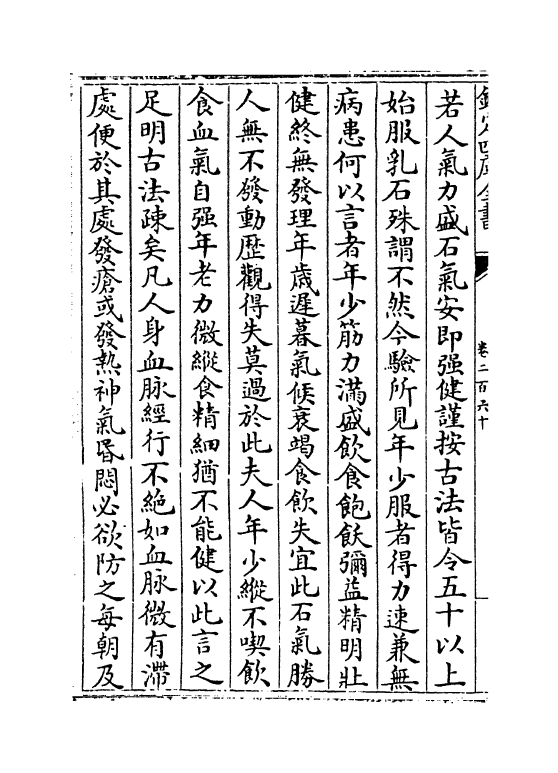 欽定四庫全書
卷二百六十
若人氣力盛石氣安即强健謹按古法皆令五十以上
始服乳石殊謂不然今驗所見年少服者得力速兼無
病患何以言者年少筋力滿盛飲食飽飫彌益精明壯
健終無發理年歳遲暮氣候衰竭食飲失宜此石氣勝
人無不發動歴觀得失莫過於此夫人年少縱不喫飲
食血氣自强年老力微縱食精細猶不能健以此言之
足明古法疎矣凡人身血脉經行不絶如血脉微有滯
處便於其處發瘡或發熱神氣昬悶必欲防之每朝及